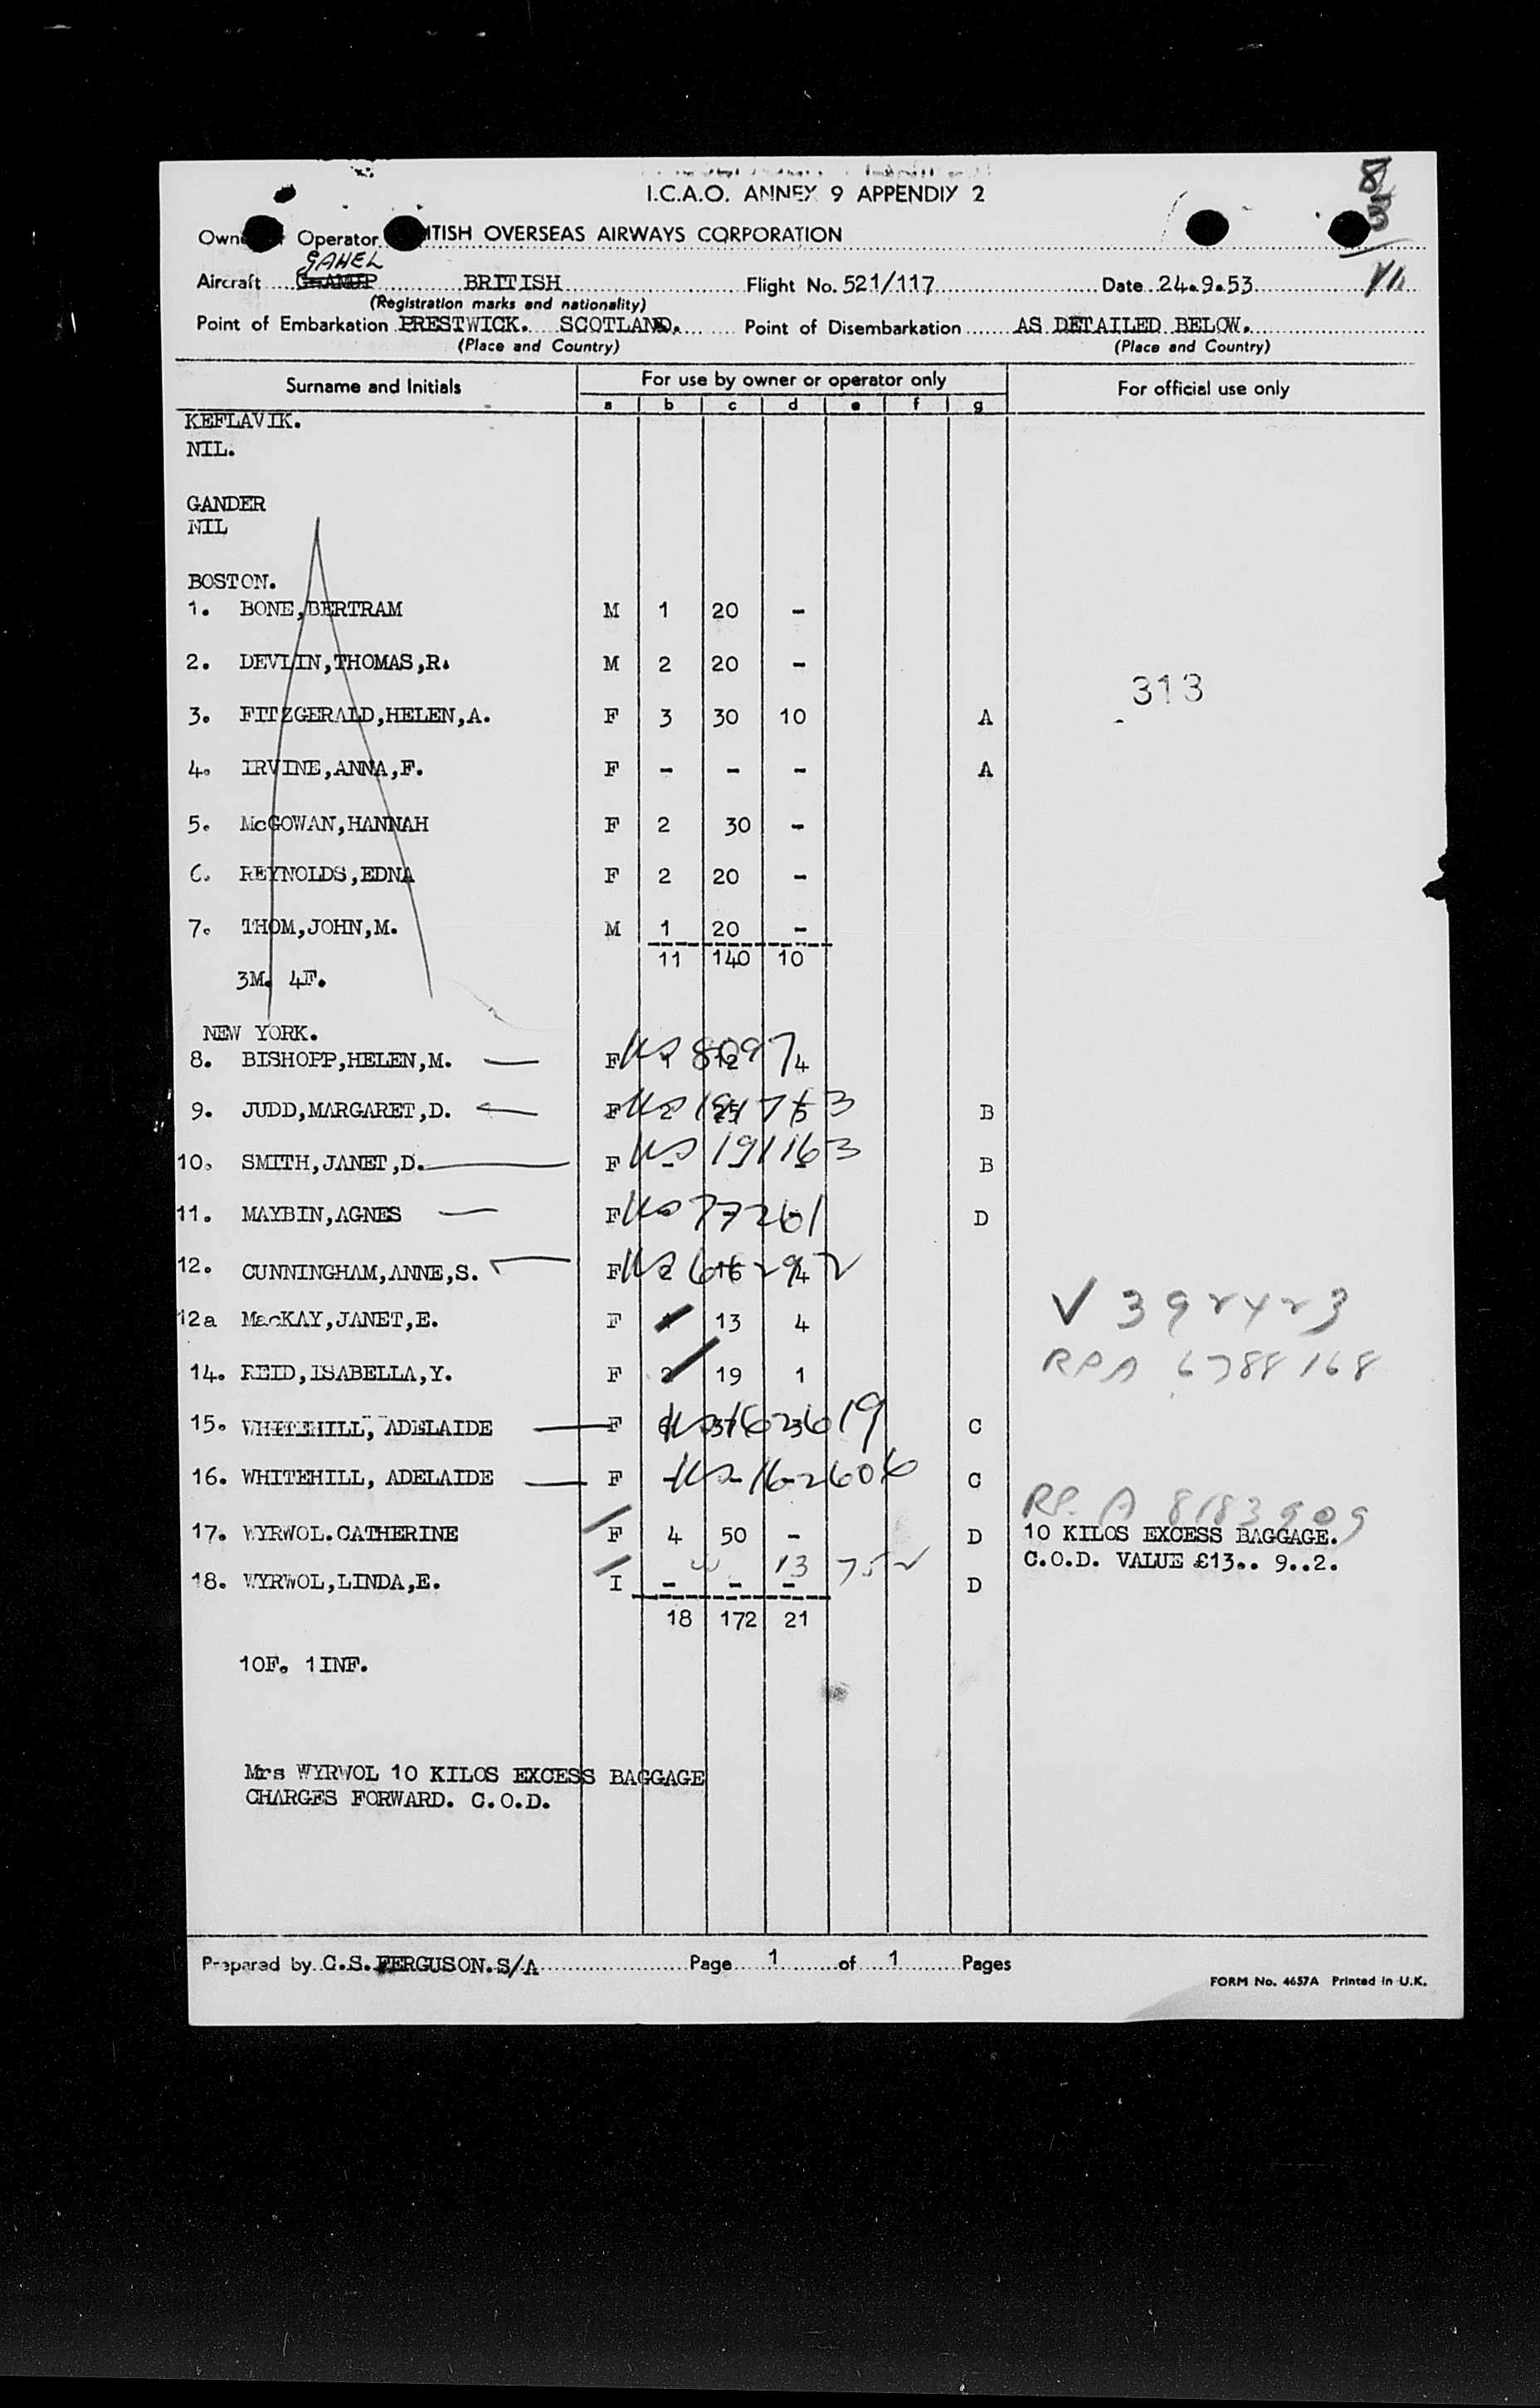 I.C.A.O. ANNEX 9 APPENDIX 2
Operator ITISH OVERSEAS AIRWAYS CORPORATION
GAHEL
Aircraft BRITISH Flight No. 521/117 Date 24.9.53
(Registration marks and nationality)
Point of Embarkation PRESTWICK. SCOTLAND. Point of Disembarkation AS DETAILED BELOW.
(Place and Country) (Place and Country)
Surname and Initials For use by owner or operator only For official use only
a b c d e f g
KEFLAVIK.
NIL.
GANDER
NIL
BOSTON.
1. BONE,BERTRAM M 1 20 -
2. DEVLIN,THOMAS,R. M 2 20 -
313
3. FITZGERALD,HELEN,A. F 3 30 10 A
4. IRVINE,ANNA,F. F - - - A
5. McGOWAN,HANNAH F 2 30 -
6. REYNOLDS,EDNA F 2 20 -
7. THOM,JOHN,M. M 1 20 -
11 140 10
3M. 4F.
NEW YORK.
8. BISHOPP,HELEN,M. F 1 12 4
9. JUDD,MARGARET,D. F B
10. SMITH,JANET,D. F 191163 B
11. MAYBIN,AGNES F D
12. CUNNINGHAM,ANNE,S. F 2 16 4
12a MacKAY,JANET,E. F 1 13 4
14. REID,ISABELLA,Y. F 2 19 1
RPA 6788168
15. WHITEHILL, ADELAIDE F C
16. WHITEHILL, ADELAIDE F C
17. WYRWOL.CATHERINE F 4 50 - D 10 KILOS EXCESS BAGGAGE.
C.O.D. VALUE £13.. 9..2.
18. WYRWOL,LINDA,E. I - - - D
18 172 21
10F. 1INF.
Mrs WYRWOL 10 KILOS EXCESS BAGGAGE
CHARGES FORWARD. C.O.D.
Prepared by C.S.FERGUSON.S/A Page 1 of 1 Pages
FORM No. 4657A Printed in U.K.